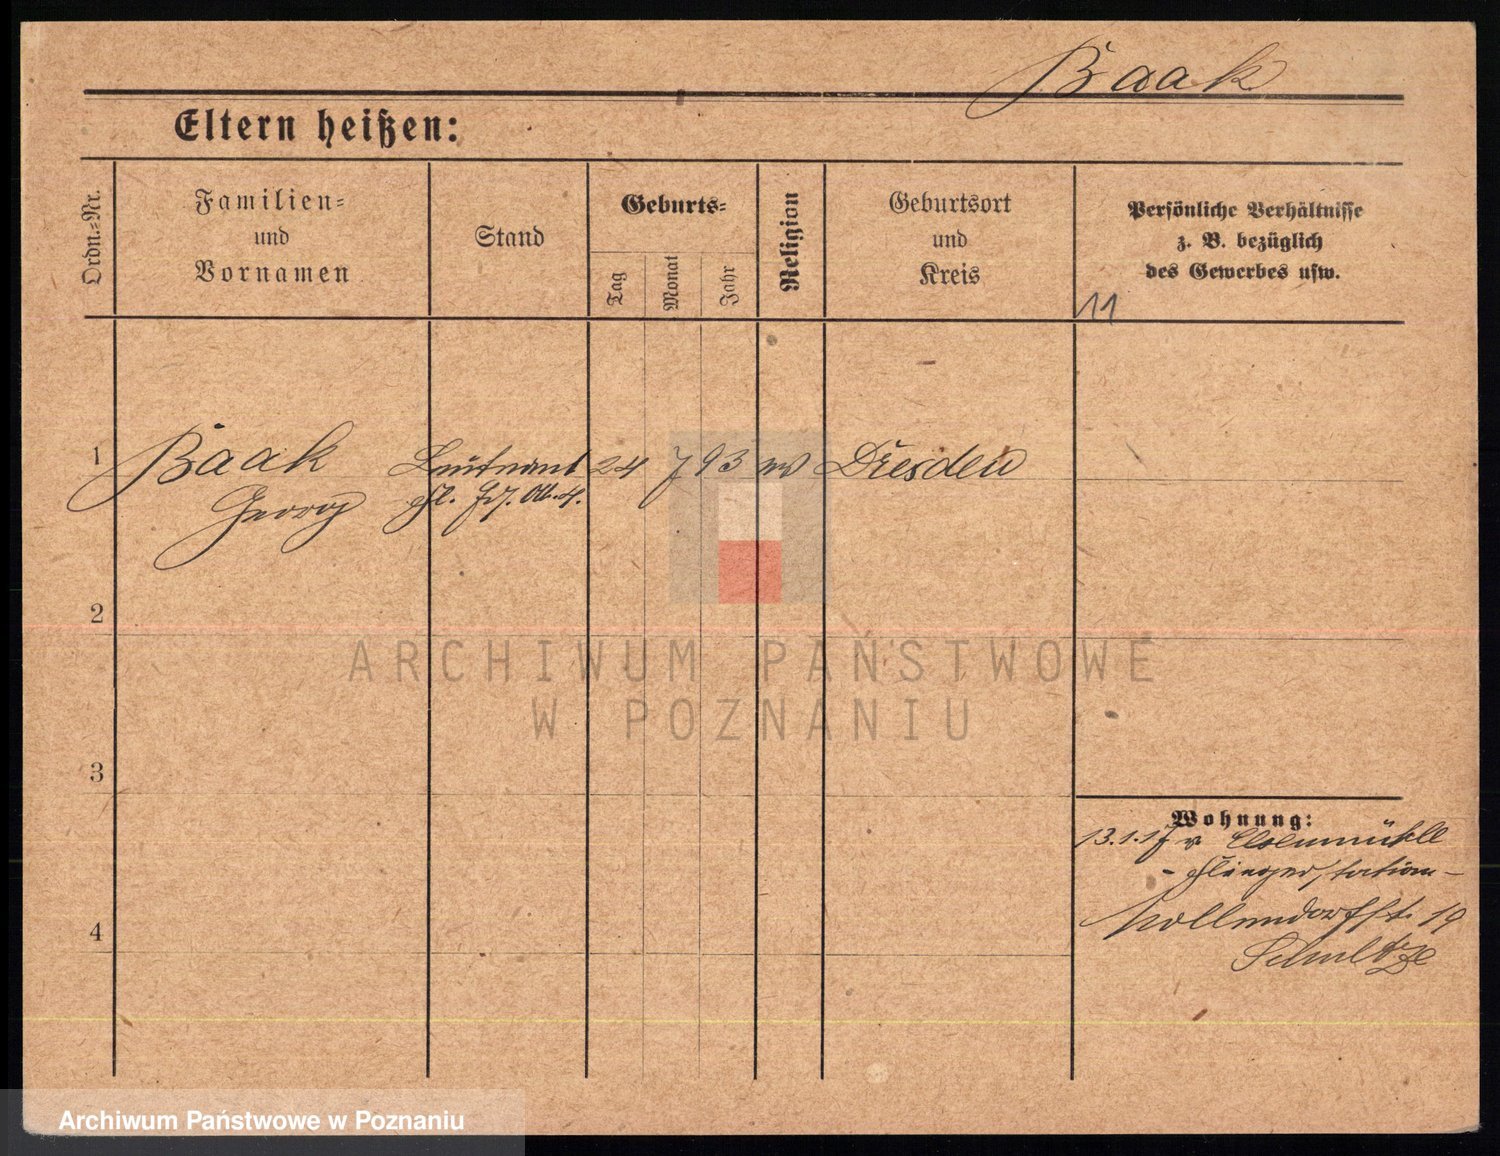 Baak
Eltern heißen:
Ordn.-Nr.
Familien-
und
Vornamen
Stand
Geburts-
Tag
Monat
Jahr
Religion
Geburtsort
und
Kreis
Persönliche Verhältnisse
z. B. bezüglich
des Gewerbes usw.
11
1 Baak Leutnant 24 7 93 Dresden
Georg
2
3
4
ARCHIWUM PAŃSTWOWE
W POZNANIU
Wohnung:
13.1.17 v Elsenmühle
- Fliegerstation -
Nollendorfstr. 19
Schultze
Archiwum Państwowe w Poznaniu